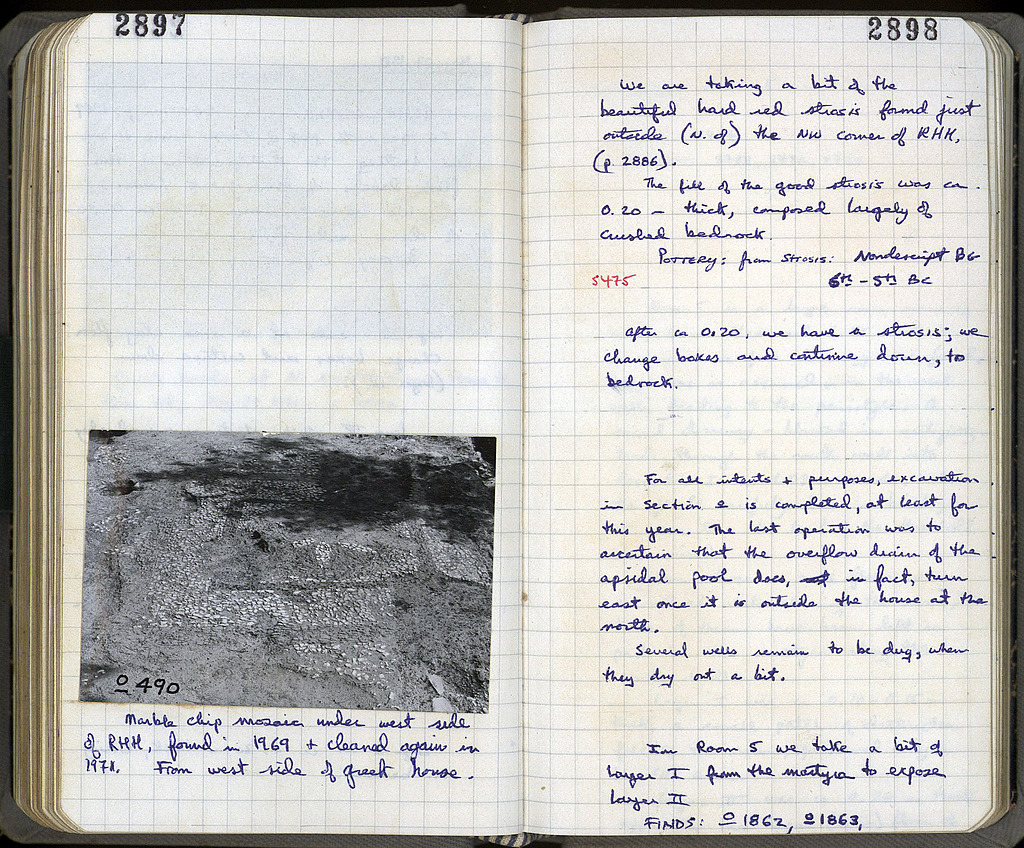 2897
o 490
Marble chip mosaic under west side
of RHH, found in 1969 + cleaned again in
1971. From west side of greek house.
2898
We are taking a bit of the
beautiful hard red strosis found just
outside (N. of) the NW corner of RHH,
(p. 2886).
The fill of the good strosis was ca.
0.20 - thick, composed largely of
crushed bedrock.
POTTERY: from STROSIS: Nondescript BG
5475 6th - 5th BC
After ca 0.20, we have a strosis; we
change boxes and continue down, to
bedrock.
For all intents + purposes, excavation
in Section e is completed, at least for
this year. The last operation was to
ascertain that the overflow drain of the
apsidal pool does, in fact, turn
east once it is outside the house at the
north.
Several wells remain to be dug, when
they dry out a bit.
In Room 5 we take a bit of
layer I from the martyra to expose
layer II
FINDS: o 1862, o 1863,